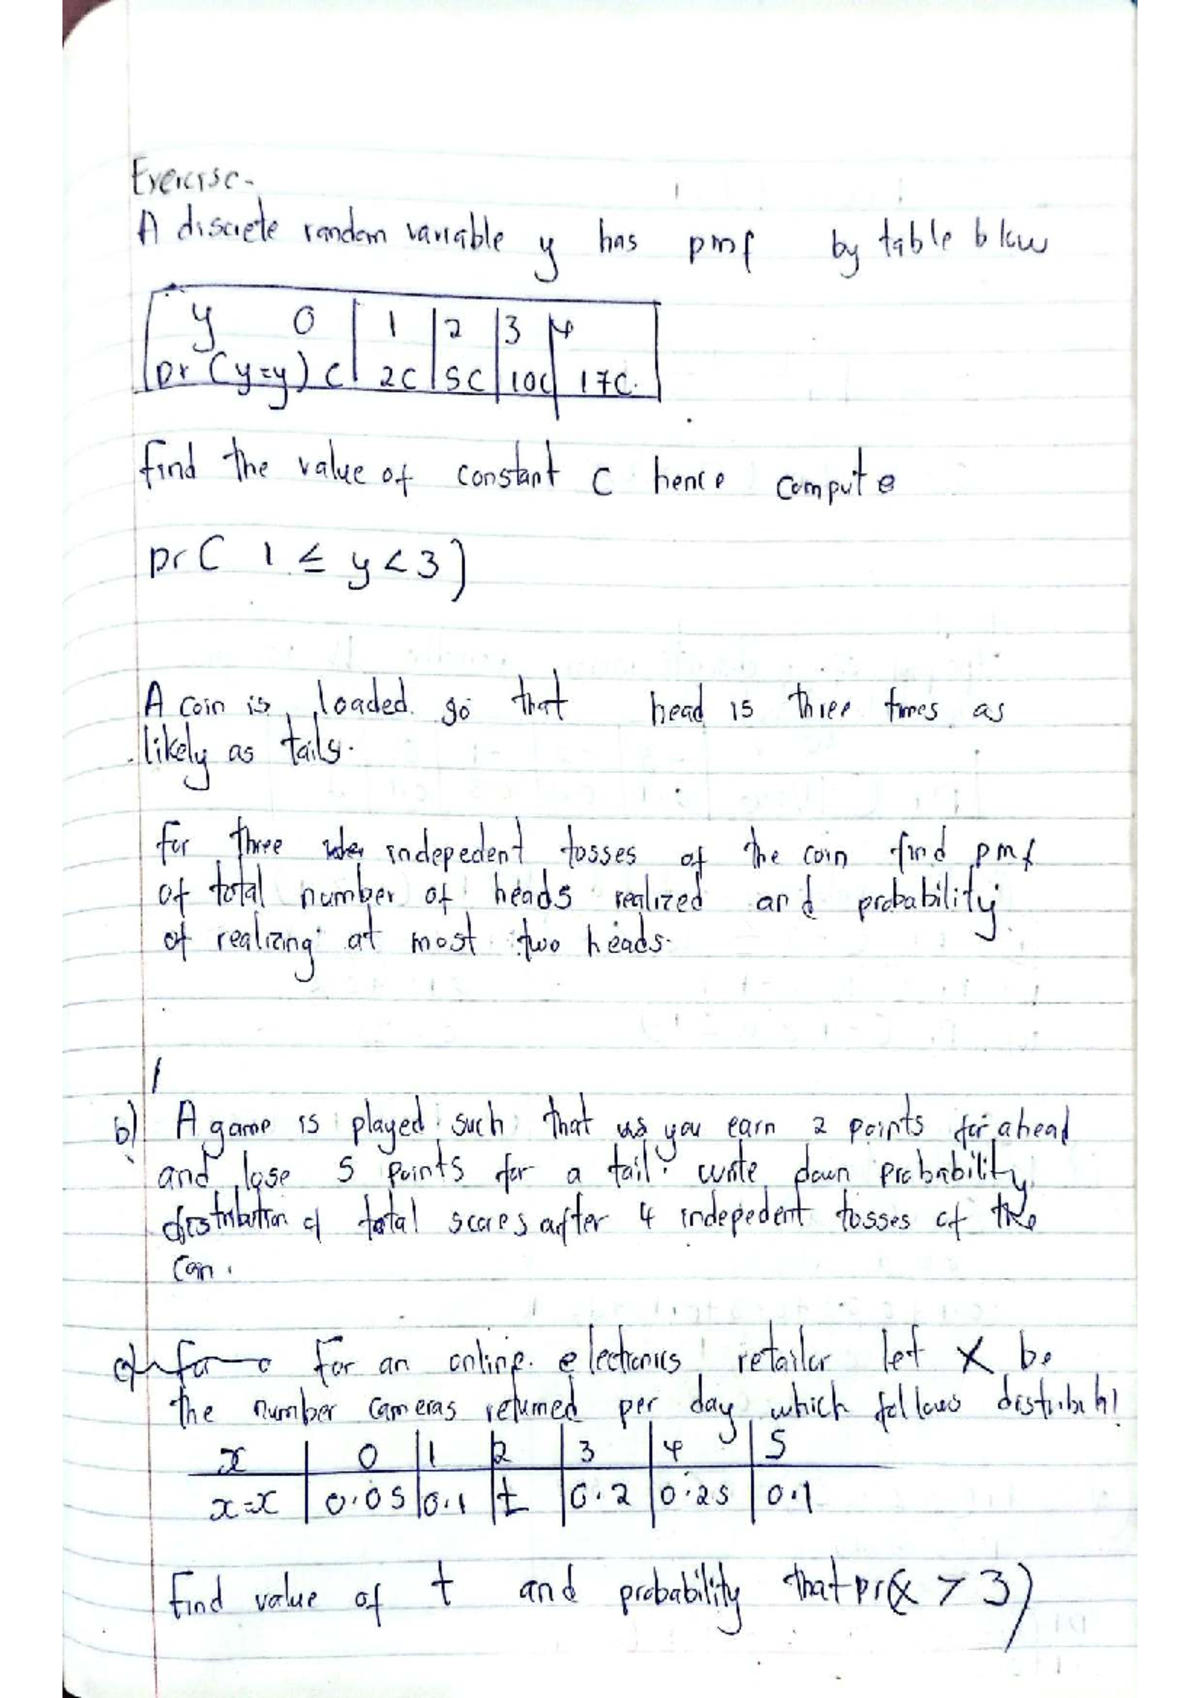 Exercise-
A discrete random variable y has pmf by table blow
y 0 | 1 | 2 | 3 | 4
pr (y=y) C | 2C | 5C | 10C | 17C.
find the value of constant C hence compute
pr ( 1 ≤ y < 3)
A coin is loaded so that head is three times as
likely as tails.
for three independent tosses of the coin find pmf
of total number of heads realized and probability
of realizing at most two heads.
b) A game is played such that as you earn 2 points for ahead
and lose 5 points for a tail. write down probability
distribution of total scores after 4 independent tosses of the
coin.
c) for an online electronics retailer let X be
the number cameras returned per day which follows
x | 0 | 1 | 2 | 3 | 4 | 5
x=x | 0.05 | 0.1 | t | 0.2 | 0.25 | 0.1
find value of t and probability that pr(x > 3)